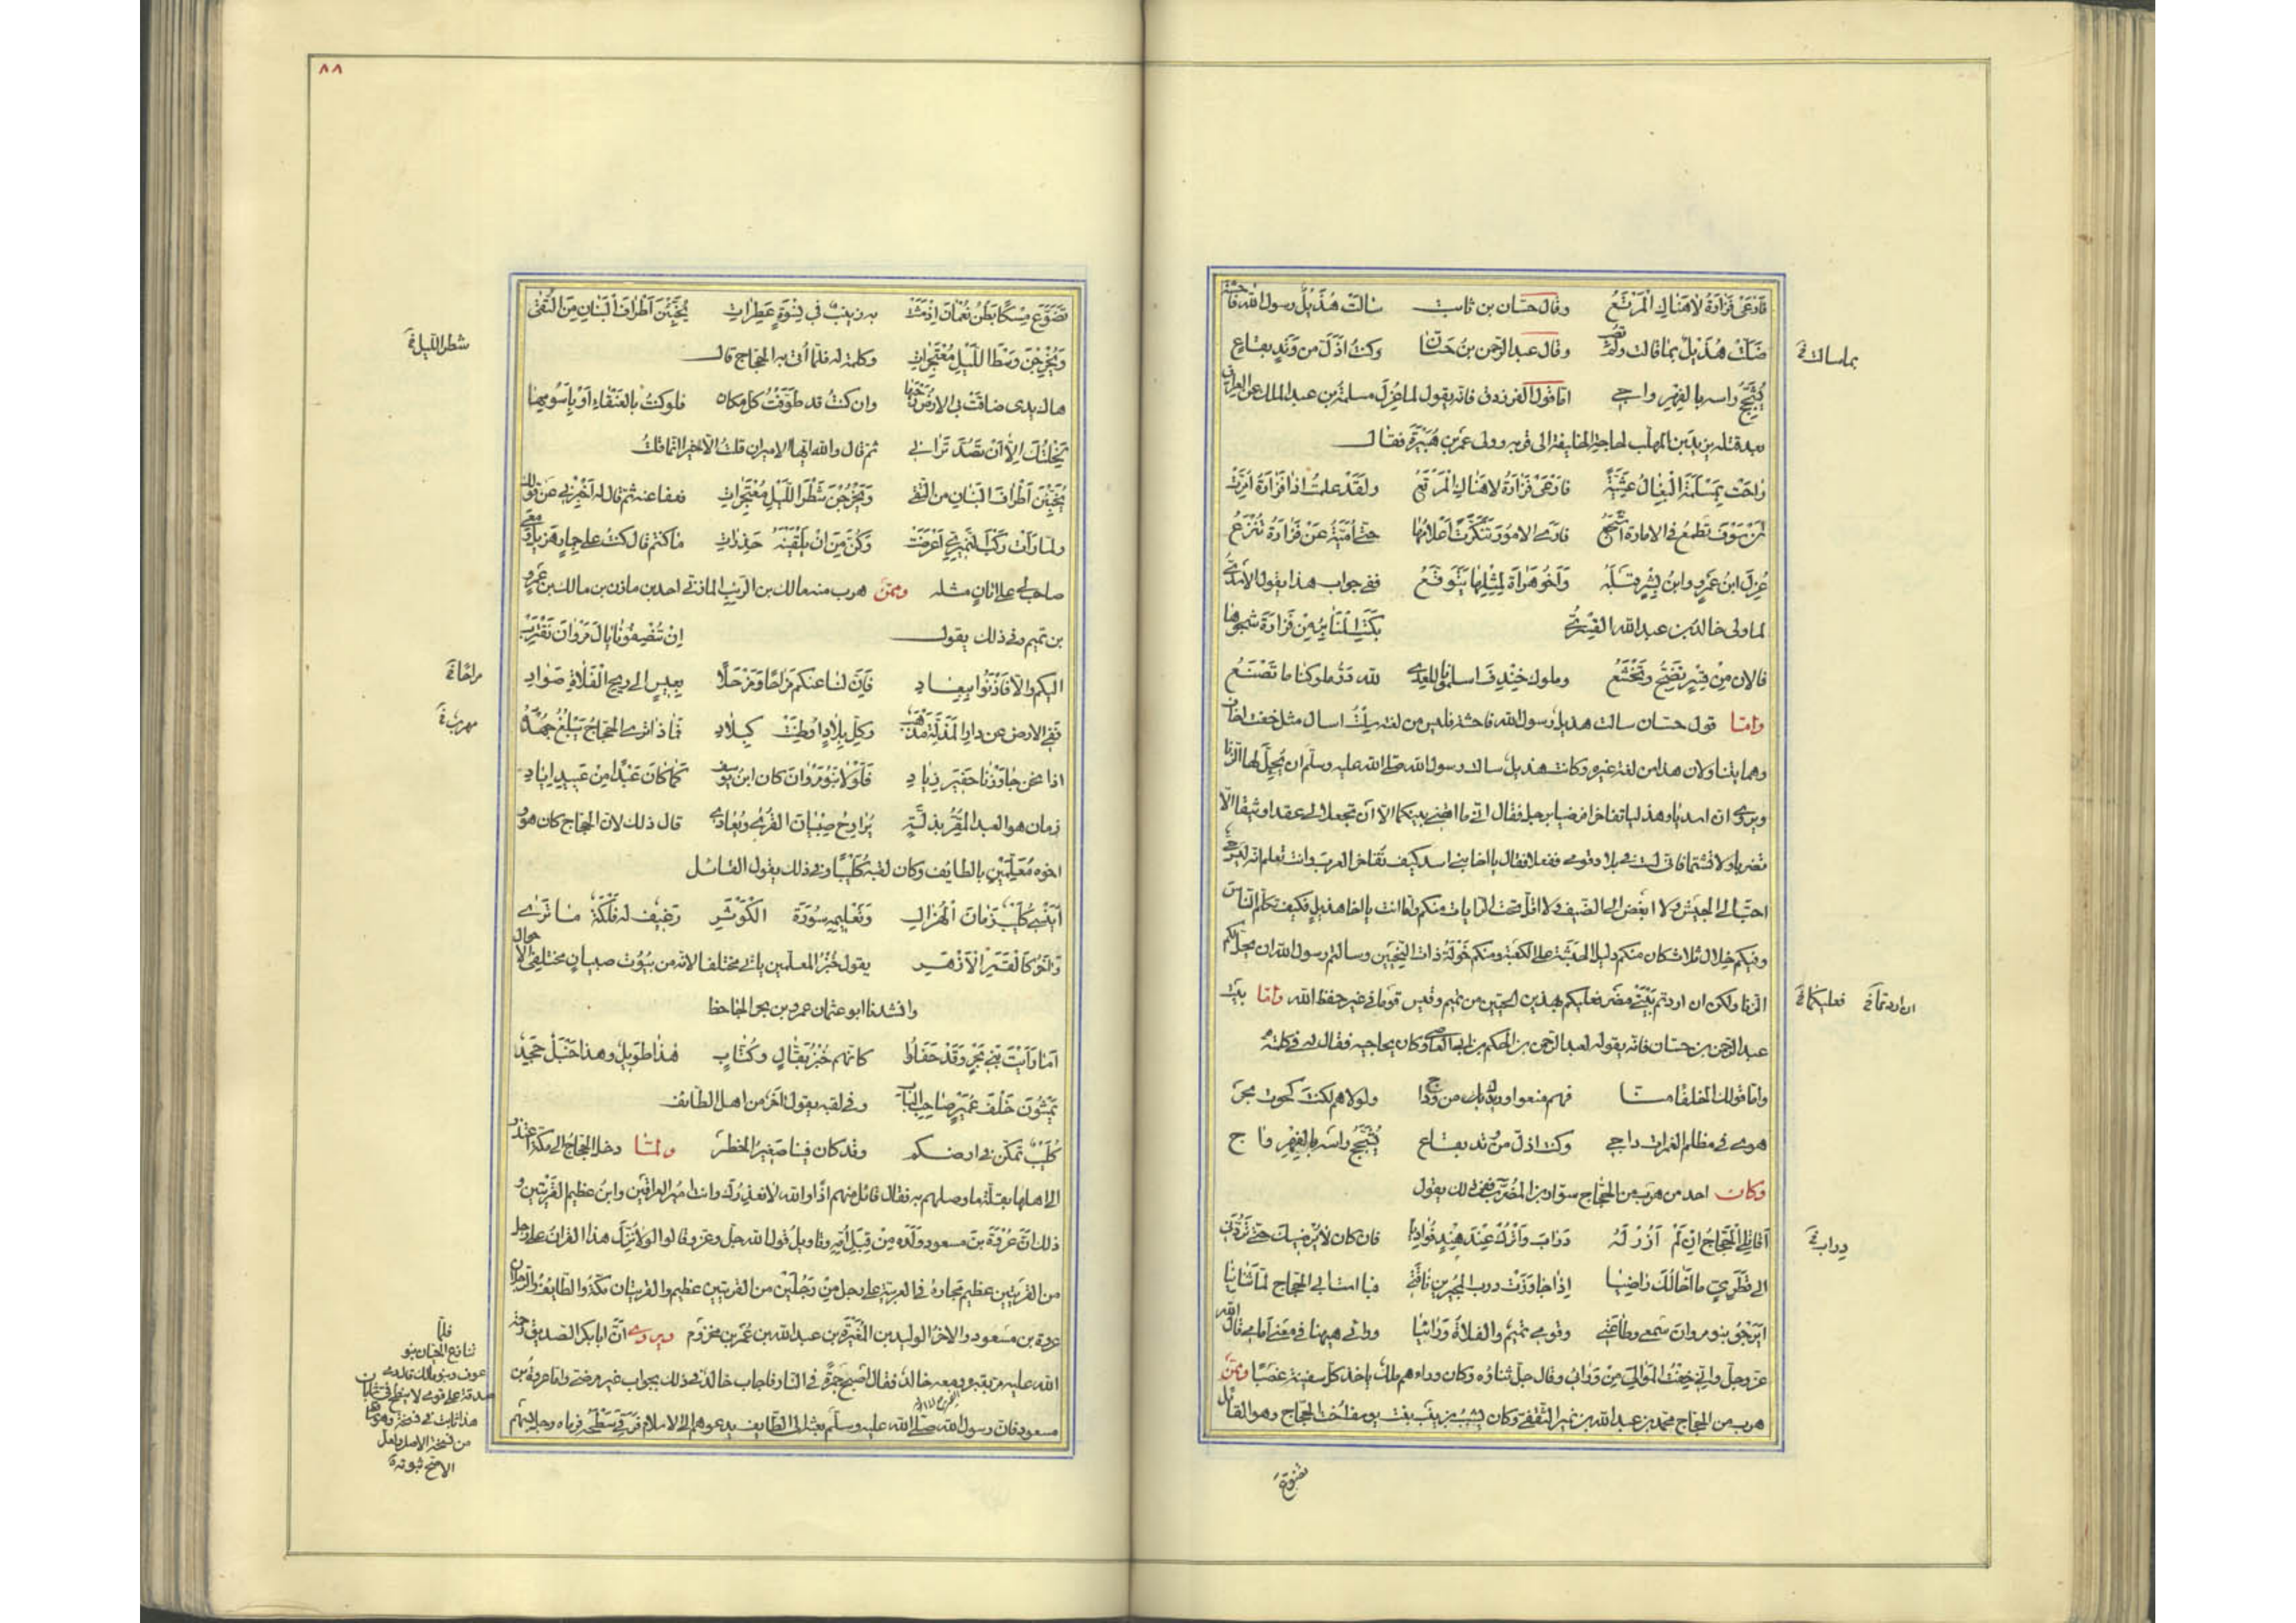 فَارْعَيْ فَزَارَةُ لاهَنَاكِ الْمَرْتَعُ وقال حسّان بن ثابت سَالَتْ هُذَيْلٌ رسولَ اللّه فاحِشَةً
ضَلَّتْ هُذَيْلٌ بِمَا قالت ولم تُصِبِ وقال عبد الرحمن بن حَسّان وكنتَ اَذَلَّ من وَتِدٍ بقاعٍ
بماسالت خ
يُشَجِّجُ راسَه بالفِهْرِ واجي امّا قول الفرزدق فانّه يقول لما عُزِلَ مسلمةُ بن عبد الملك عن العراق
بعد قتله يزيد بن المهلّب لحاجة الخليفة الى قربه وولى عُمَر بن هُبَيْرَةَ فقال
رَاحَتْ بِمَسْلَمَةَ الْبِغَالُ عَشِيَّةً فَارْعَيْ فَزَارَةُ لاهَنَاكِ الْمَرْتَعُ ولَقَدْ علمتُ اذا فَزَارَةُ اُمِّرَتْ
اَنْ سَوْفَ تَطْمَعُ في الامارة اَشْجَعُ فارَى الاُمُورَ تَنَكَّرَتْ اَعْلامُهَا حتّى اُمَيَّةُ عَنْ فَزَارَةَ تَنْزِعُ
عُزِلَ ابنُ عَمْرٍو وابنُ بِشْرٍ قبْلَهُ وَاَخُو هَرَاةَ لِمِثْلِهَا يَتَوَقَّعُ ففي جواب هذا يقول الاسَدي
لما ولى خالد بن عبد اللّه القسري بَكَتِ الْمَنَابِرُ مِنْ فَزَارَةَ شَجْوَهَا
فالان مِنْ قَسْرٍ تَضِجُّ وتَخْشَعُ وملوك خِنْدِفَ اسلمونا للعِدى للّه دَرُّ ملوكنا ما تَصْنَعُ
وامّا قول حسّان سالت هذيل رسول اللّه فاحشة فليس من لغته سِلْتُ اسال مثل خفت اخاف
وهما يتساولان هذا من لغة غيره وكانت هذيل سالت رسول اللّه صلّى اللّه عليه وسلّم ان يُحِلَّ لها الزنا
ويروى ان اسديا وهذليا تفاخرا فرضيا برجل فقال انّي ما اقضى بينكما الاّ اَن تجعلا لى عقدا وثيقا الاّ
تضربا ولا تشتما فانّى لست في بلاد قومى ففعلا فقال يا اخا بني اسد كيف تفاخر العرب وانت تعلم انه ليس حىّ
احبّ الى الجيش ولا ابغض الى الضيف ولا اقلّ تحت الرايات منكم وامّا انت يا اخا هذيل فكيف تكلّم الناس
وفيكم خلال ثلاث كان منكم دليل الحبشة على الكعبة ومنكم خَوْلَةُ ذات النحيين وسالتم رسول اللّه ان يحلّ لكم
الزنا ولكن ان اردتم بَيْتَىْ مضر فعليكم بهذين الحيّين من تميم وقيس قوما فى غير حفظ اللّه وامّا بيت
ان اردتما خ فعليكما خ
عبد الرّحمن بن حسّان فانّه يقوله لعبد الرّحمن بن الحكم بن ابي العاص وكان يهاجيه فقال له فى كلمته
وامّا قولك الخلفا منّا فهم منعوا وريدك من وداج ولولاهم لكنت كحوت بحر
هوى فى مظلم الغمرات داجى وكنت اذلّ من وتد بقاع يُشَجِّجُ راسَه بالفِهْرِ واج
وكان احد من هرب من الحجّاج سوّار بن المضرّب ففى ذلك يقول
اَقَاتِلِيَ الْحَجَّاجُ اِنْ لَمْ اَزُرْ لَهُ دَرَابَ وَاَتْرُكْ عِنْدَ هِنْدٍ فُؤَادِيَا فان كان لا يُرْضِيكَ حتّى تَرُدَّنى
دراب خ
الى قَطَرِيٍّ ما اخَالُكَ رَاضِيَا اِذَا جَاوَزَتْ درب المجيزين ناقَتى فباست ابى الحجّاج لمّا ثَنَانِيَا
اَيَرْجُو بنو مروان سَمْعى وطاعَتى وقومى تميمٌ والفلاةُ وَرَائيَا ورائى هيهنا فى معنى امامى قال اللّه
عزّ وجلّ وانّي خِفْتُ الْمَوَالِيَ مِنْ وَرَائِي وقال جلّ ثناؤه وكان وراءهم ملك ياخذ كلّ سفينة غصبًا وممّن
هرب من الحجّاج محمّد بن عبد اللّه بن نمير الثقفىّ وكان يشبّب بزينب بنت يوسف اخت الحجّاج وهو القائل
تضوّع
٨٨
تَضَوَّعَ مِسْكًا بَطْنُ نُعْمَانَ اِذْ مَشَتْ به زينبٌ في نِسْوَةٍ عَطِرَاتِ يُخَبِّئْنَ اَطْرَافَ الْبَنَانِ مِنَ التُّقَى
وَيَخْرُجْنَ وَسْطَ اللَّيْلِ مُعْتَجِرَاتِ وكلمة له فلمّا اُتى به الحجّاج قال
شطر اللّيل خ
هاك يدى ضاقَتْ بى الارضُ رحبُها وان كنتُ قد طوّفتُ كل مكان فلو كنتُ بالعَنْقَاءِ اَوْ بِاَسُومِهَا
لَخِلْتُكَ اِلاّ اَنْ تَصُدَّ تَرَانِي ثم قال والله ايّها الامير ان قلتُ الاّ خيرا انّما قلتُ
يُخَبِّئْنَ اَطْرَافَ البَنَانِ من التُّقَى وَيَخْرُجْنَ شَطْرَ اللَّيْلِ مُعْتَجِرَاتِ فعفا عنه ثم قال له اَخْبِرْنى عن قولك
ولمّا رَاَتْ رَكْبَ النُّمَيْرِيِّ اَعْرَضَتْ وَكُنَّ مِنَ اَنْ يَلْقَيْنَهُ حَذِرَاتِ ما كنتم قال كنتُ على حمارٍ هزيل ومعى
صاحب لى على اتانٍ مثله وممّن هرب منه مالك بن الرَّيْب المازنىّ احد بن مازن بن مالك بن عَمرو
بن تميم وفى ذلك يقول اِنْ تُنْصِفُونَا يَالَ مَرْوَانَ نَقْتَرِبْ
اليكم والاّ فَأْذَنُوا بِبِعَادِ فَاِنَّ لنا عنكم مَرَاحًا وَمَرْحَلًا بِعِيسٍ الى ريحِ الْفَلاةِ صَوَادِ
مزاحا خ
ففى الارض عن دارِ الْمَذَلَّةِ مَذْهَبٌ وكلّ بِلادٍ اُوطِنَتْ كبلادِ فَمَاذا ترى الحَجَّاجَ يَبْلُغُ جُهْدُهُ
مهرب خ
اذا نحن جاوَزْنَا حَفِيرَ زِيَادِ فَلَوْلا بَنُو مَرْوَانَ كان ابنُ يوسف كَمَا كَانَ عَبْدًا مِنْ عَبِيدِ اِيَادِ
زمان هو العبد الْمُقِرُّ بذِلَّةٍ يُرَاوِحُ صِبْيَانَ القُرى ويُغَادى قال ذلك لان الحجّاج كان هو و
اخوه مُعَلِّمَيْنِ بالطايف وكان لقبه كُلَيْبًا وفى ذلك يقول القائل
اَيَنْسَى كُلَيْبٌ زَمَانَ الْهُزَالِ وَتَعْلِيمِهِ سُورَةَ الْكَوْثَرِ رَغِيفٌ لَه فَلْكَةٌ مَا تَرَى
وَآخَرُ كالْقَمَرِ الاَزْهَرِ يقول خُبْزُ المعلّمين ياتى مختلفا لانّه من بيُوت صبيانٍ مختلفى الاحوال
وانشدنا ابو عثمان عمرو بن بحر الجاحظ
اَمَا رَاَيْتَ بَنِي بَحْرٍ وَقَدْ حَفَلُوا كانّهم خُبْزُ بَقَّالٍ وكُتَّابِ هذا طَويلٌ وهذا حَنْبَلٌ جَحِدٌ
يَمْشُونَ خَلْفَ عُمَيْرٍ صاحِبِ البَابِ وفى لقبه يقول آخر من اهل الطّائف
كُلَيْبٌ تمكّن فى ارضكم وقد كان فينا صَغِيرَ الخطَرْ ولمّا دخل الحجّاج الى مكّة اعتذر
الى اهلها بقلّة ما وصلهم به فقال قائل منهم اِذًا واللّه لا نعذِرُكَ وانت امير العراقَيْن وابنُ عظيم القَرْيَتين و
ذلك انّ عُرْوَةَ بن مسعود ولَدَه مِنْ قِبَلِ اُمّه وتاويلُ قول اللّه جلّ وعزّ وقالوا لَوْلا نُزِّلَ هذا القرانُ على رجل
من القَرْيَتين عظيم مجازهُ فى العربيّة على رجل مِنْ رَجُلَيْن من القريتين عظيم والقريتان مكّةُ والطّايفُ والرجلان
عروة بن مسعود والاخرُ الوليد بن المُغِيْرَة بن عبد اللّه بن عُمَر بن مخزوم ويروى انّ ابا بكر الصديق رحمة
اللّه عليه مرّ بقبره ومعه خالدٌ فقال اَصْبَحَ جَمْرَةً فى النّار فاجاب خالدٌ فى ذلك بجواب غير مرضىّ وامّا عروةُ بن
مسعود فان رسول اللّه صلّى اللّه عليه وسلّم بعثه الى الطّايف يدعوهم الى الاسلام فَرَقِيَ سَطْحَه فرماه رجل منهم
فلمّا
تنازع الحيّان بنو
عوف وبنو مالك قال دعى
صدقة على قومى
من نسخة الاصل ولعل
الاصحّ ثبوته